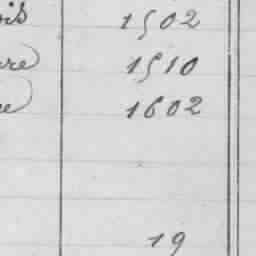 ois 1502
are 1510
re 1602
19